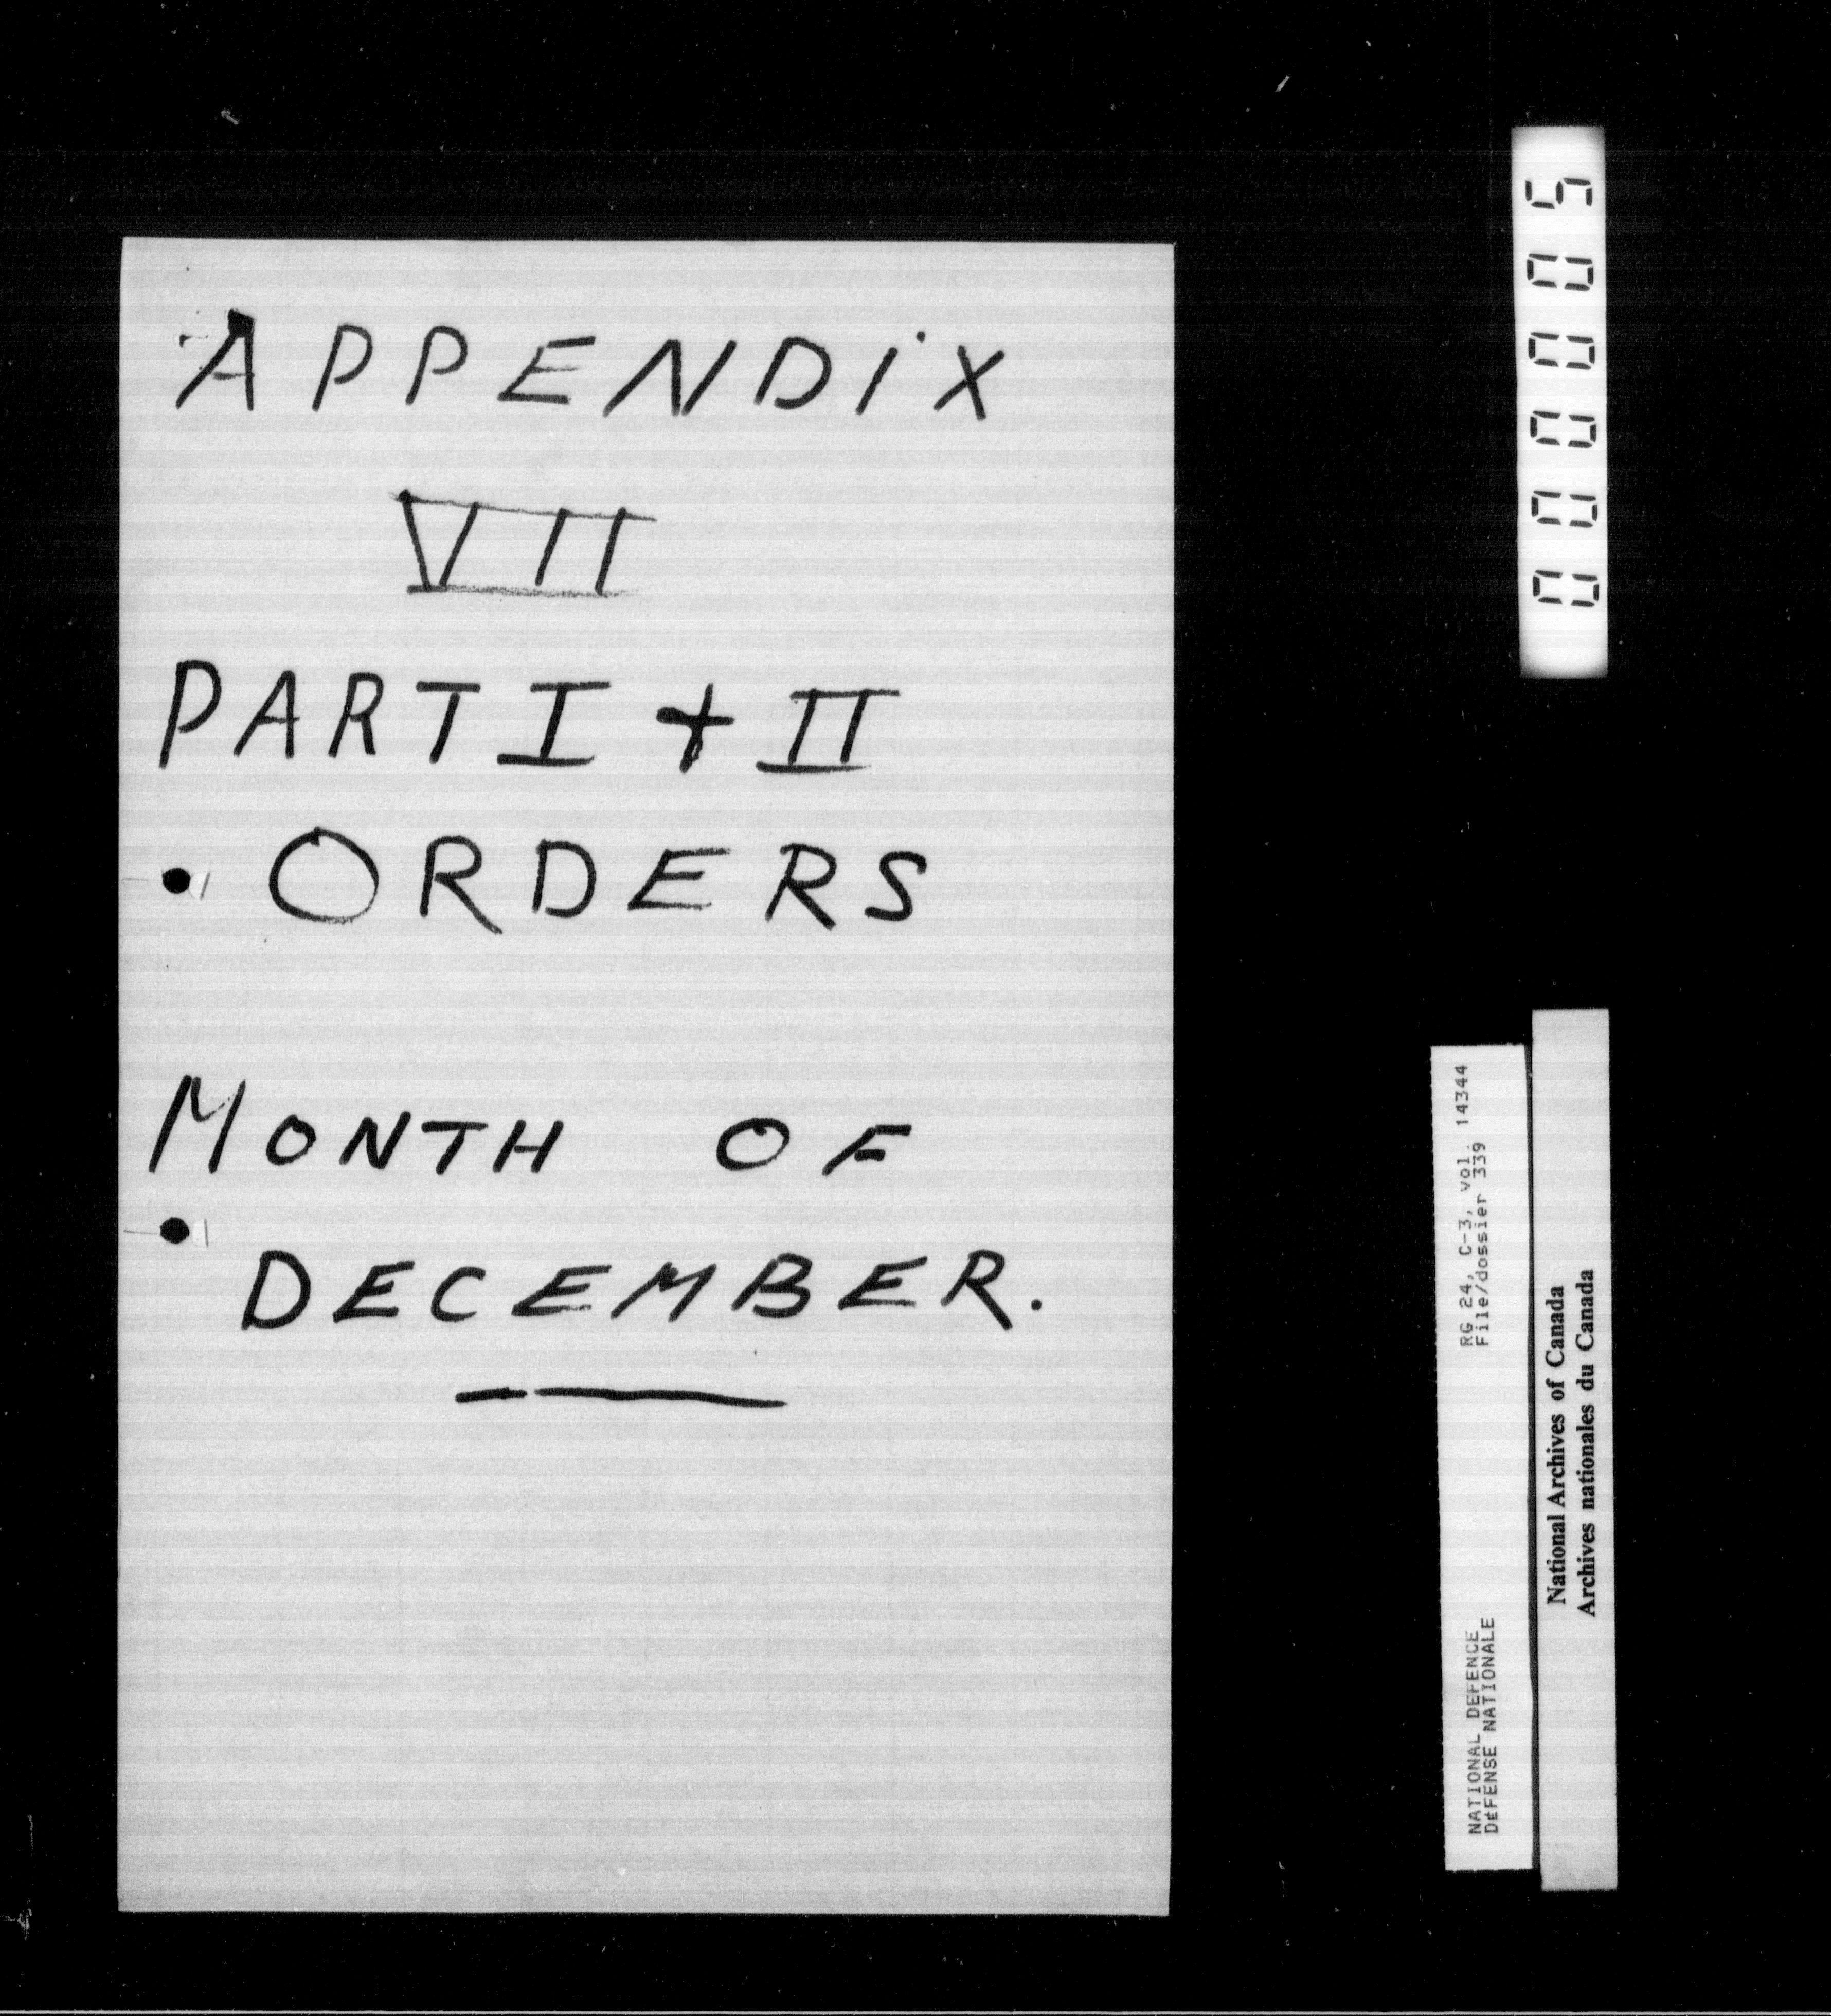 APPENDiX
VII
PART I + II
ORDERS
MONTH OF
DECEMBER.
000005
RG 24, C-3, Vol. 14344
File/dossier 339
NATIONAL DEFENCE
DéFENSE NATIONALE
National Archives of Canada
Archives nationales du Canada